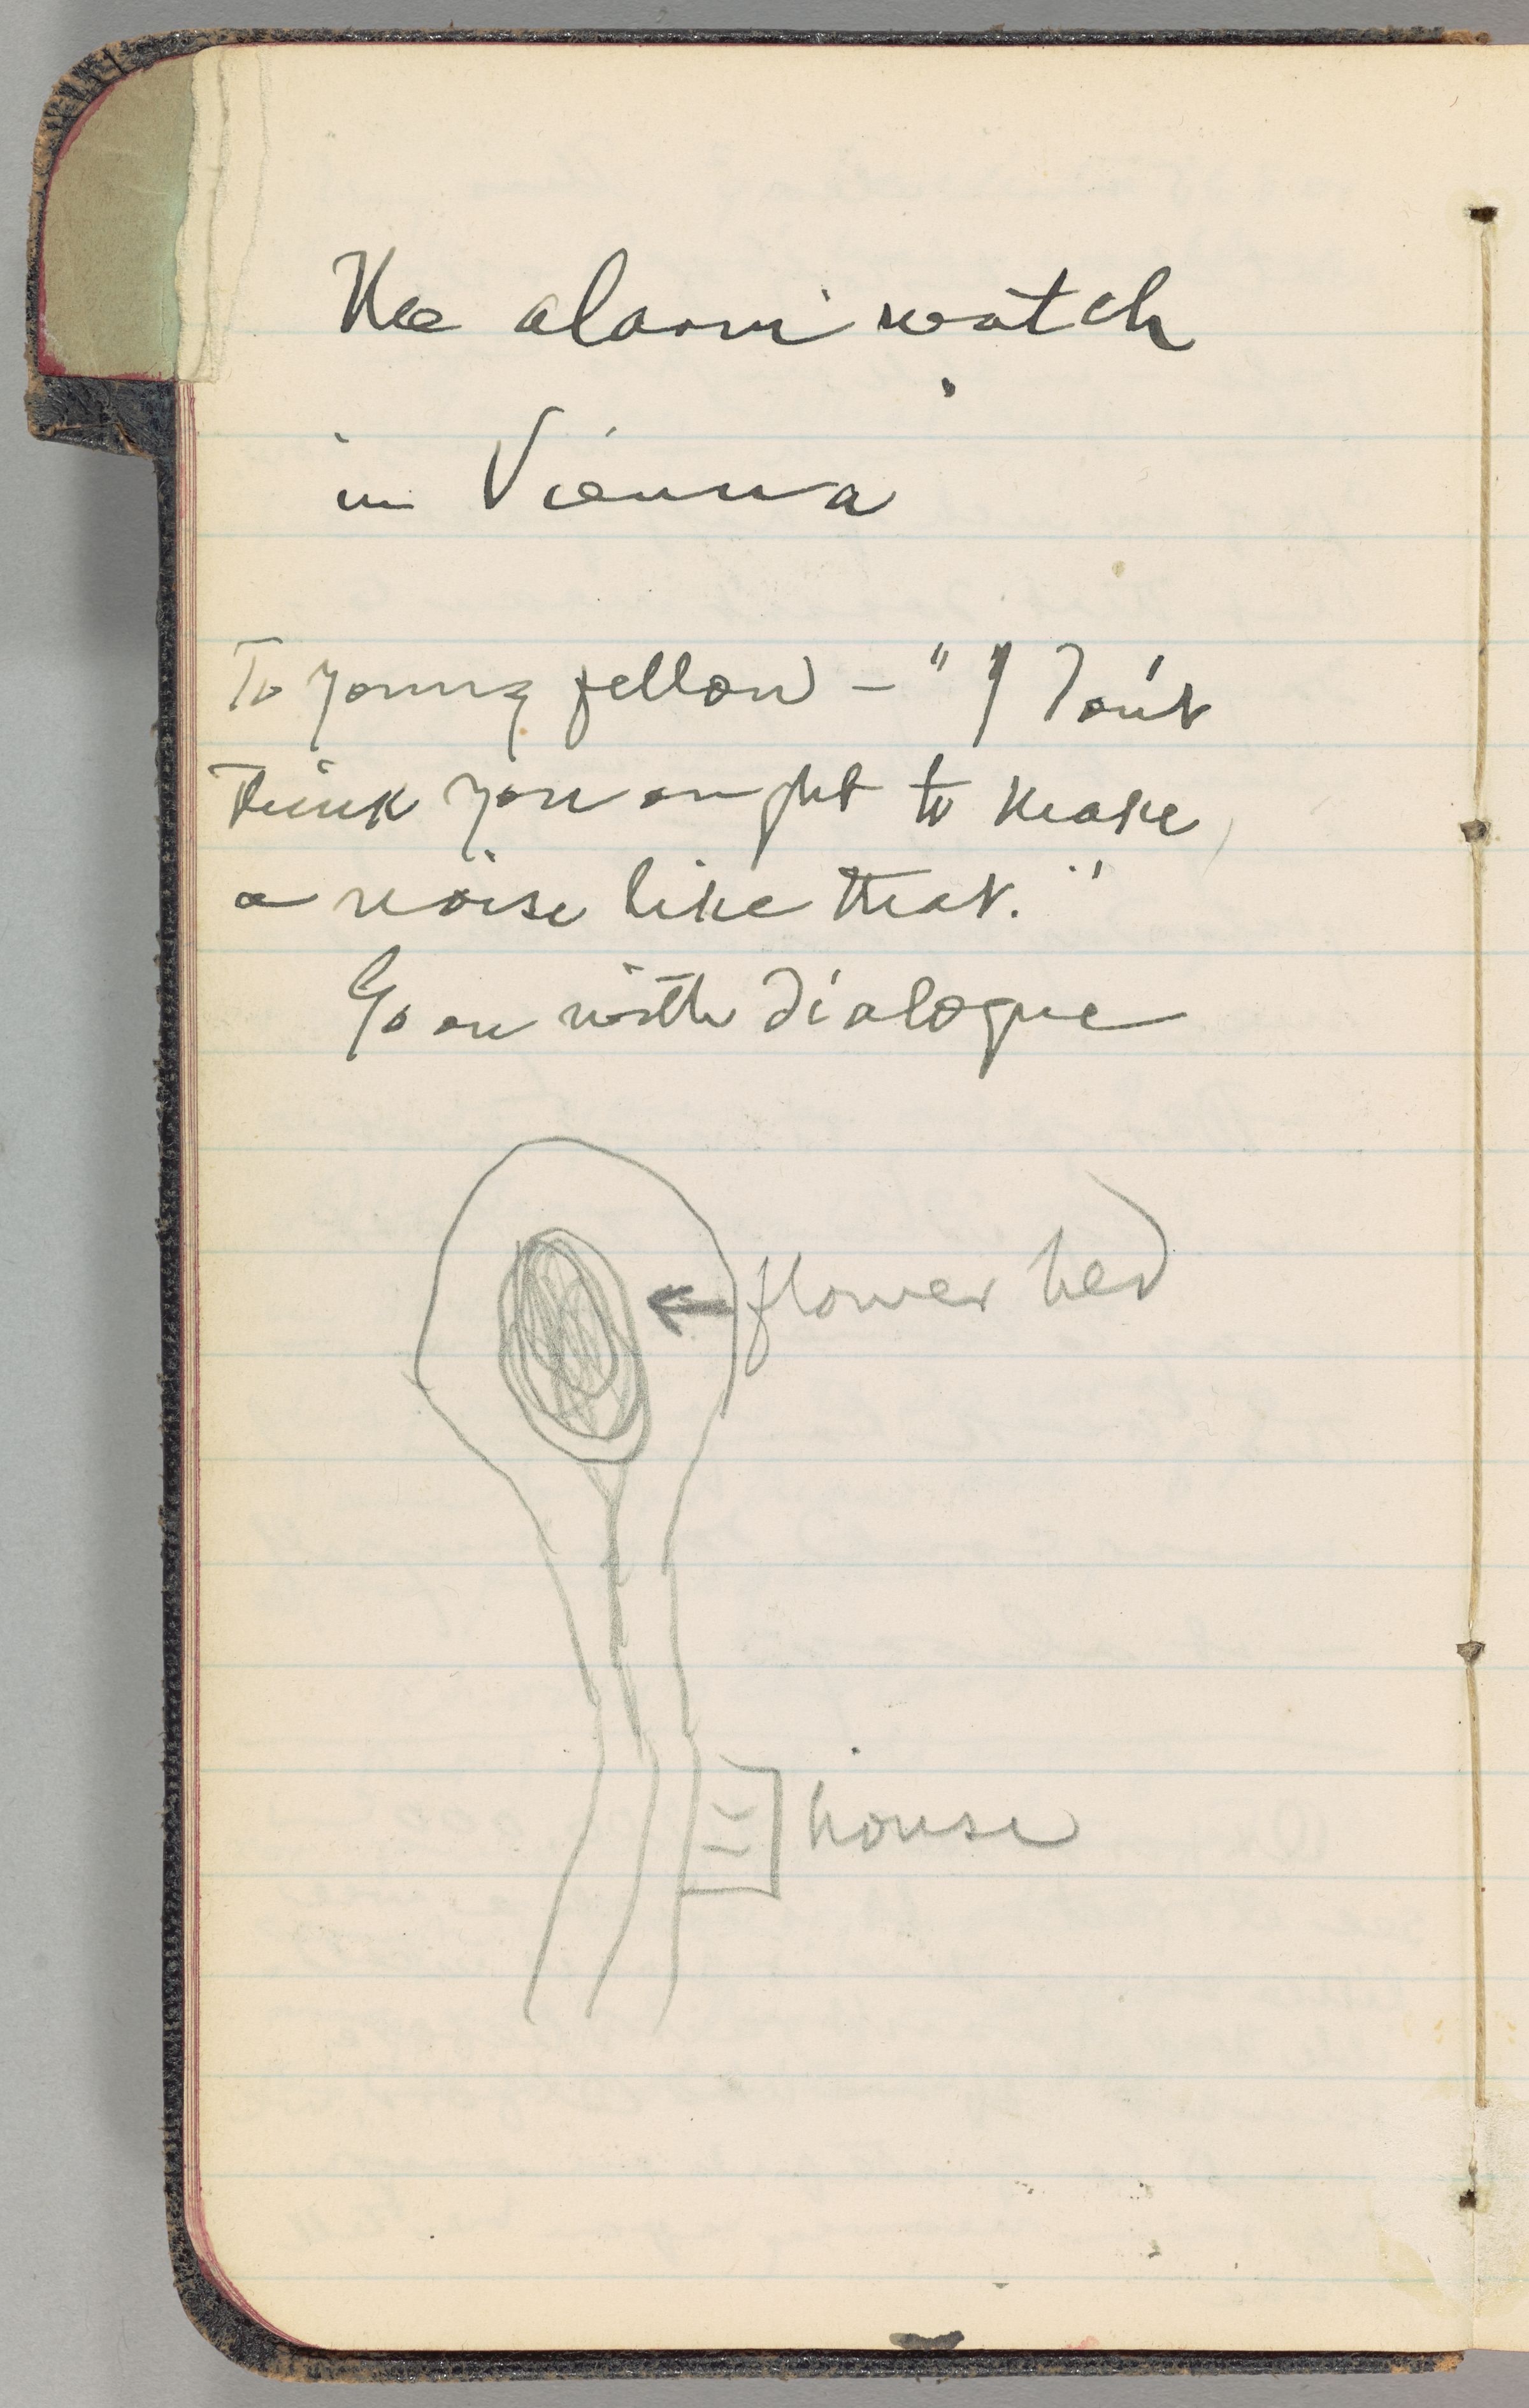 The alarm watch
in Vienna
To young fellow – "I don't
think you ought to make
a noise like that."
Go on with dialogue
flower bed
house